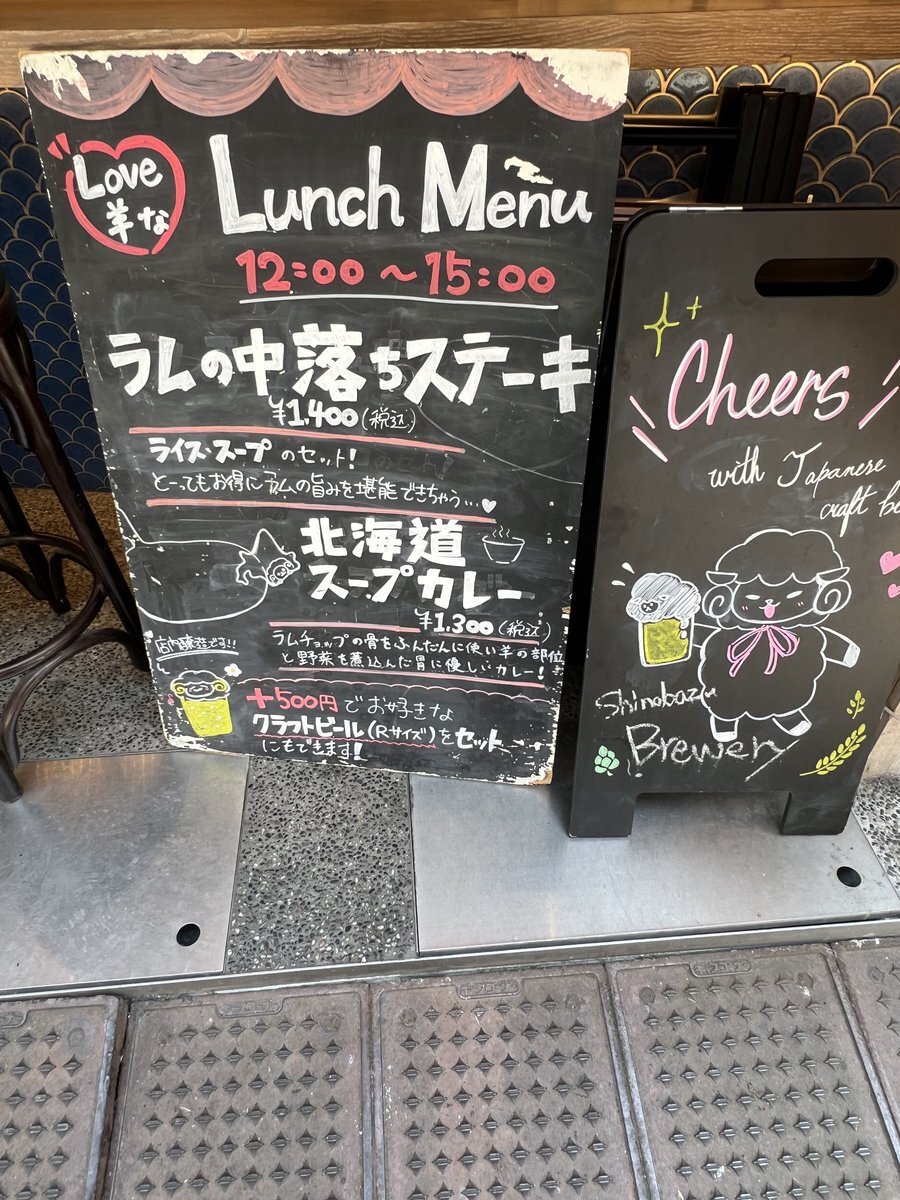 Love
羊な
Lunch Menu
12:00～15:00
ラムの中落ちステーキ
¥1,400(税込)
ライス・スープのセット!
とーってもお得にラムの旨みを堪能できちゃう…
北海道
スープカレー
¥1,300(税込)
ラムチョップの骨をふんだんに使い羊の部位
と野菜を煮込んだ胃に優しいカレー!
店内醸造です!!
+500円でお好きな
クラフトビール(Rサイズ)をセット
にもできます!
Cheers
with Japanese
craft be
Shinobazu
Brewery